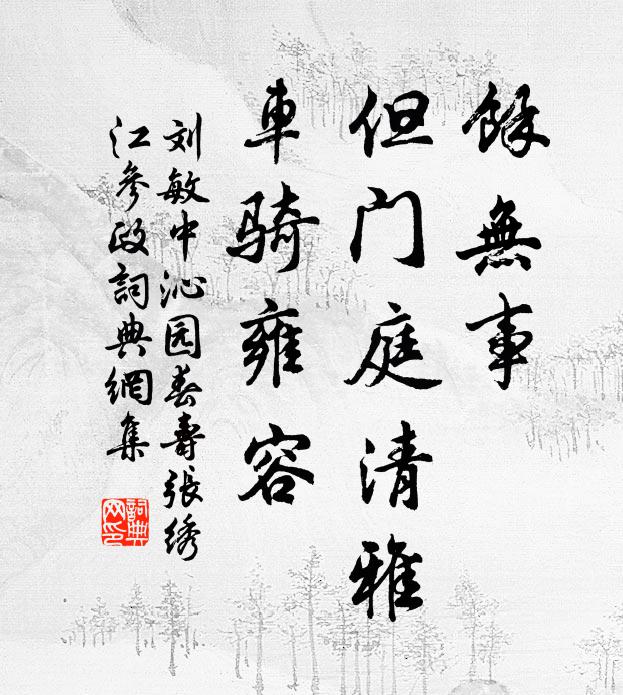 餘無事
但门庭清雅
車骑雍容
刘敏中沁园春寿張绣
江參政詞典網集
詞典网印